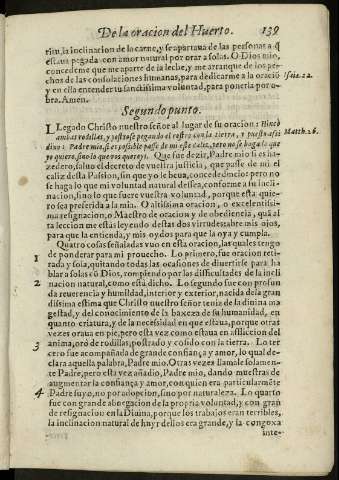 De la oracion del Huerto. 139
ritu, la inclinacion de la carne, y se apartaua de las personas a q̃
estaua pegada con amor natural por orar a solas. O Dios mio,
concedeme que me aparte de la leche, y me arranque de los pe-
chos de las consolaciones humanas, para dedicarme a la oraciõ
Isaiæ. 22.
y en ella entender tu santissima voluntad, para ponerla por o-
bra. Amen.
Segundo punto.
LLegado Christo nuestro señor al lugar de su oracion: Hincò
ambas rodillas, y postrose pegando el rostro con la tierra, y puesto assi
Matth. 26.
dixo: Padre mio, si es posible passe de mi este caliz, pero no se haga lo que
yo quiero, sino lo que vos quereys. Que fue dezir, Padre mio si es ha-
zedero, saluo el decreto de vuestra justicia, que passe de mi el
caliz desta Passion, sin que yo le beua, concededmelo: pero no
se haga lo que mi voluntad natural dessea, conforme a su incli-
nacion, sino lo que fuere vuestra voluntad, porque esta quie-
ro sea preferida a la mia. O altissima oracion, o excelentissi-
ma resignacion, o Maestro de oracion y de obediencia, que al-
ta leccion me estás leyendo destas dos virtudes: abre mis ojos,
para que la entienda, y mis oydos para que la oya y cumpla.
Quatro cosas señaladas vuo en esta oracion, las quales tengo
de ponderar para mi prouecho. Lo primero, fue oracion reti-
1
rada y sola, quitando todas las ocasiones de diuertirse para ha-
blar a solas cõ Dios, rompiendo por las dificultades de la incli
nacion natural, como está dicho. Lo segundo fue con profun
2
da reuerencia y humildad, interior y exterior, nacida de la gran
dissima estima que Christo nuestro señor tenia de la diuina ma
gestad, y del conocimiento de la baxeza de su humanidad, en
quanto criatura, y de la necessidad en que estaua, porque otras
vezes oraua en pie, pero esta vez como estaua en afliccion del
anima, orò de rodillas, postrado y cosido con la tierra. Lo ter
3
cero fue acompañada de grande confiança y amor, lo qual de-
clara aquella palabra, Padre mio. Otras vezes llamale solamen-
te Padre, pero esta vez añadio, Padre mio, dando muestras de
augmentar la confiança y amor, con quien era particularmẽte
Padre suyo, no por adopcion, sino por naturaleza. Lo quarto
4
fue con grande abnegacion de la propria voluntad, y con gran
de resignacion en la Diuina, porque los trabajos eran terribles,
la inclinacion natural de huyr dellos era grande, y la congoxa
inte-